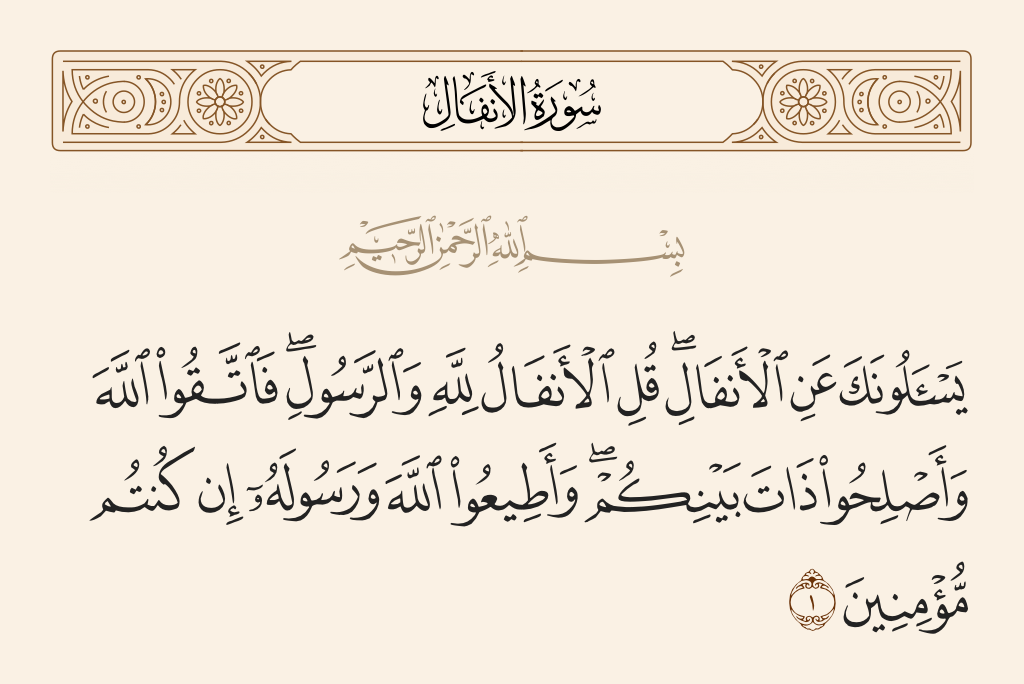 سُورَةُ الأَنفَالِ
بِسْمِ ٱللَّهِ ٱلرَّحْمَٰنِ ٱلرَّحِيمِ
يَسْـَٔلُونَكَ عَنِ ٱلْأَنفَالِ ۖ قُلِ ٱلْأَنفَالُ لِلَّهِ وَٱلرَّسُولِ ۖ فَٱتَّقُوا۟ ٱللَّهَ
وَأَصْلِحُوا۟ ذَاتَ بَيْنِكُمْ ۖ وَأَطِيعُوا۟ ٱللَّهَ وَرَسُولَهُۥٓ إِن كُنتُم
مُّؤْمِنِينَ ١